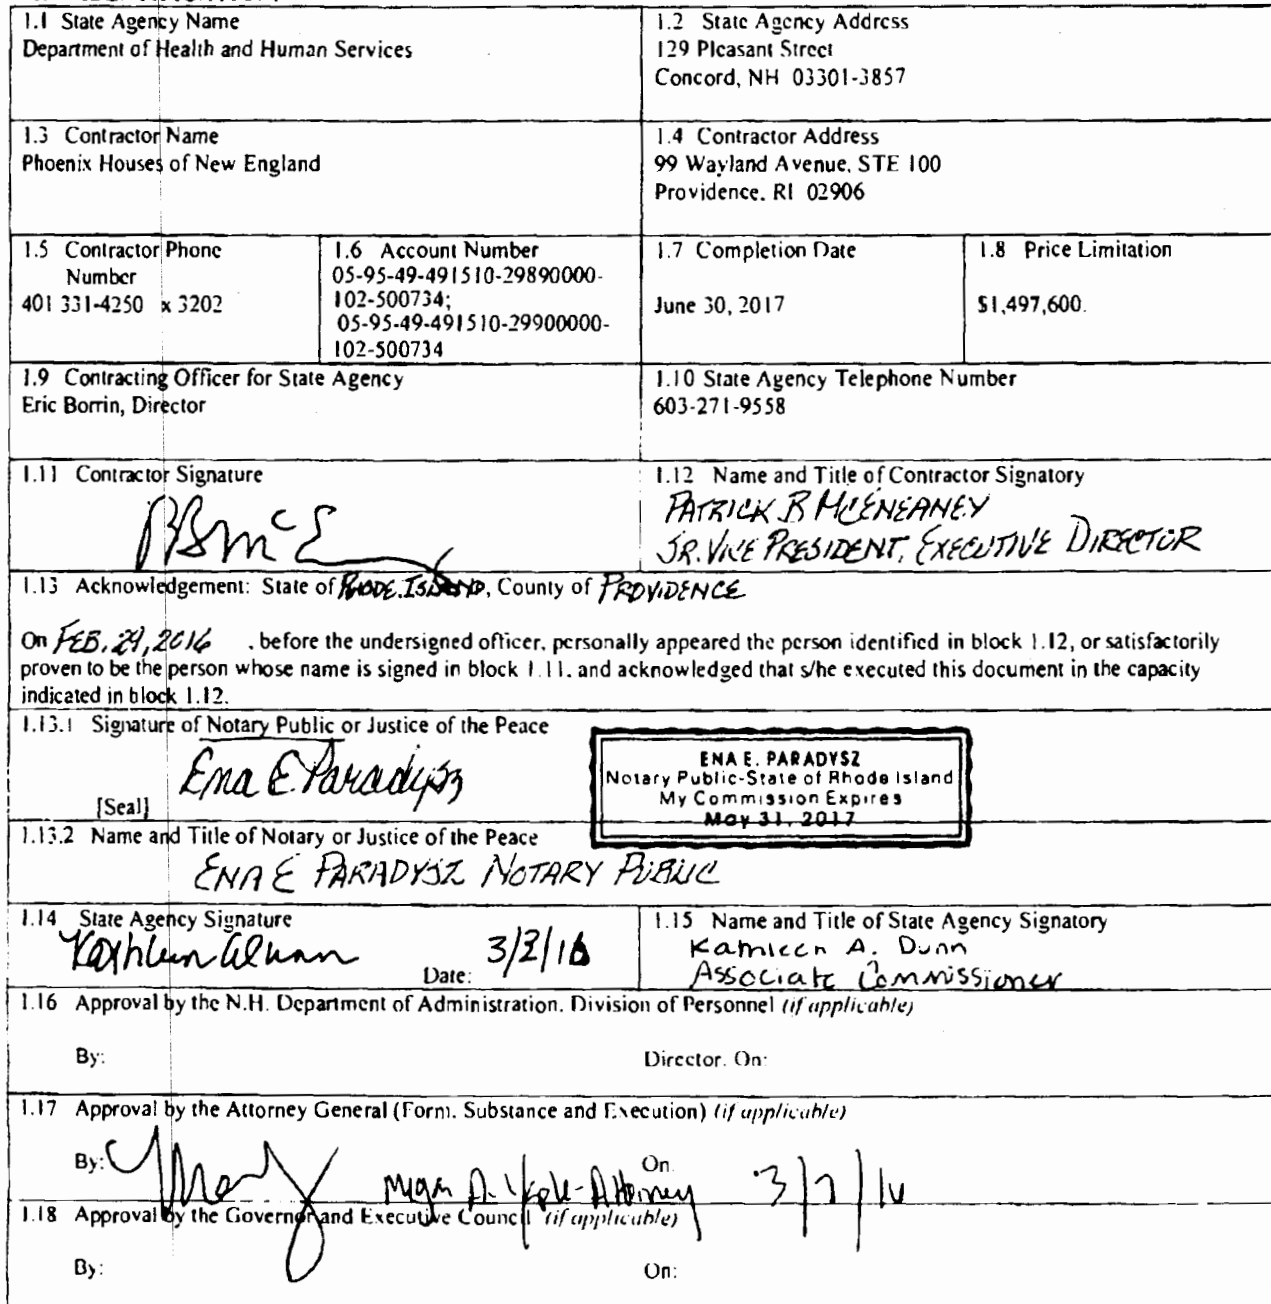 1.1 State Agency Name
Department of Health and Human Services
1.2 State Agency Address
129 Pleasant Street
Concord, NH 03301-3857
1.3 Contractor Name
Phoenix Houses of New England
1.4 Contractor Address
99 Wayland Avenue, STE 100
Providence, RI 02906
1.5 Contractor Phone
Number
401 331-4250 x 3202
1.6 Account Number
05-95-49-491510-29890000-
102-500734;
05-95-49-491510-29900000-
102-500734
1.7 Completion Date
June 30, 2017
1.8 Price Limitation
$1,497,600.
1.9 Contracting Officer for State Agency
Eric Borrin, Director
1.10 State Agency Telephone Number
603-271-9558
1.11 Contractor Signature
PBMcE
1.12 Name and Title of Contractor Signatory
PATRICK B MCENEANEY
SR. VICE PRESIDENT, EXECUTIVE DIRECTOR
1.13 Acknowledgement: State of RHODE ISLAND, County of PROVIDENCE
On FEB. 29, 2016 , before the undersigned officer, personally appeared the person identified in block 1.12, or satisfactorily
proven to be the person whose name is signed in block 1.11, and acknowledged that s/he executed this document in the capacity
indicated in block 1.12.
1.13.1 Signature of Notary Public or Justice of the Peace
Ena E. Paradysz
[Seal]
ENA E. PARADYSZ
Notary Public-State of Rhode Island
My Commission Expires
May 31, 2017
1.13.2 Name and Title of Notary or Justice of the Peace
ENA E PARADYSZ NOTARY PUBLIC
1.14 State Agency Signature
Date: 3/2/16
1.15 Name and Title of State Agency Signatory
Kathleen A. Dunn
Associate Commissioner
1.16 Approval by the N.H. Department of Administration, Division of Personnel (if applicable)
By: Director, On:
1.17 Approval by the Attorney General (Form, Substance and Execution) (if applicable)
By: Attorney On: 3/7/16
1.18 Approval by the Governor and Executive Council (if applicable)
By: On: